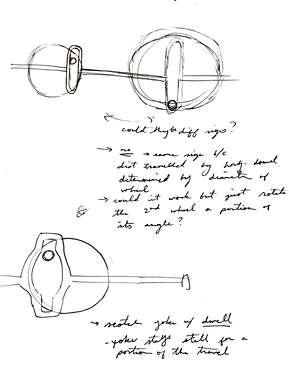 could they be diff sizes?
→ no → same size b/c
dist travelled by horiz. dowel
determined by diameter of
wheel
→ could it work but just rotate
the 2nd wheel a portion of
its angle?
→ scotch yoke w/ dwell
- yoke stays still for a
portion of the travel